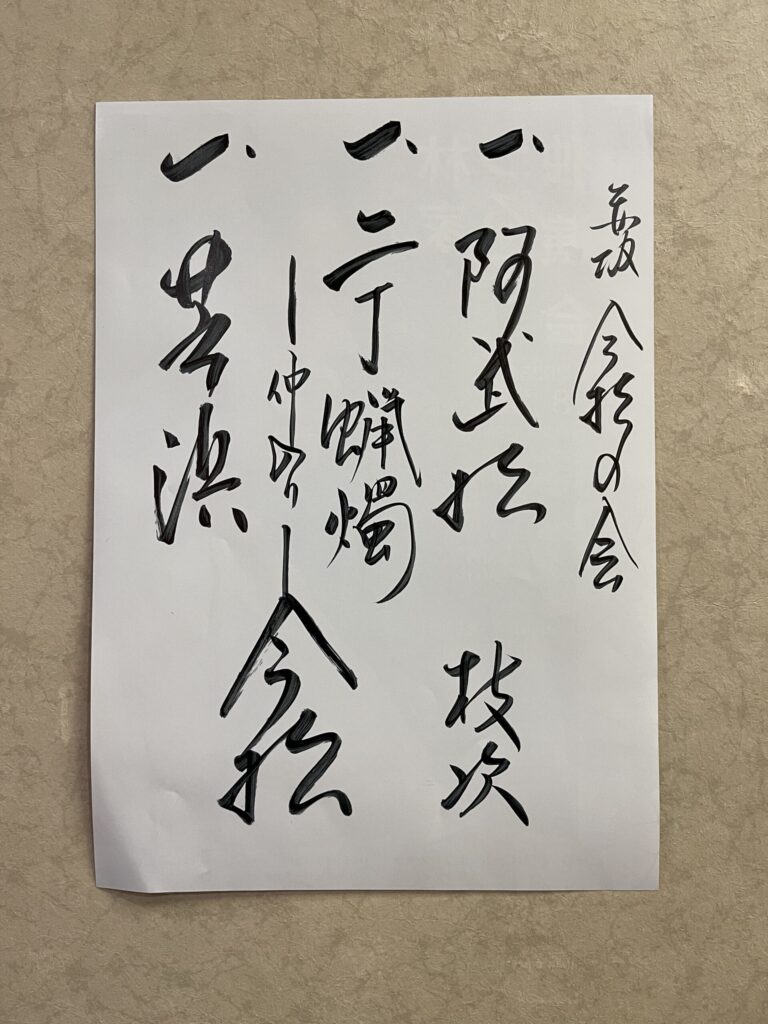 今松の会
一、阿武松 枝次
一、二丁蝋燭
ー仲入りー
一、芝浜
今松